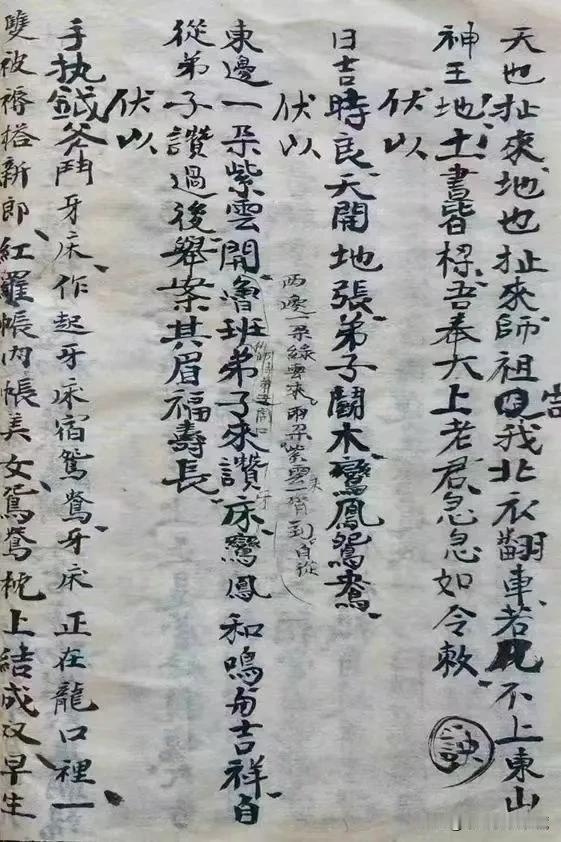 天也扯來地也扯來師祖告我北衣翻車若不上東山
神王地土書皆標吾奉大上老君急急如令敕
訣
伏以
日吉時良天開地張弟子鬪木鸞鳳鴛鴦
伏以
西邊一朵綠雲來兩朵紫雲一齊到自從
東邊一朵紫雲開魯班弟子來讚床鸞鳳和鳴多吉祥自
從弟子讚過後舉案其眉福壽長
伏以
手执鉞斧鬥牙床作起牙床宿鴛鴦牙床正在龍口裡一
雙被褥搭新郎紅羅帳內帳美女鴛鴦枕上結成双早生